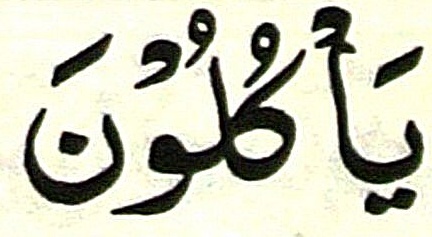 يَاْكُلُوْنَ